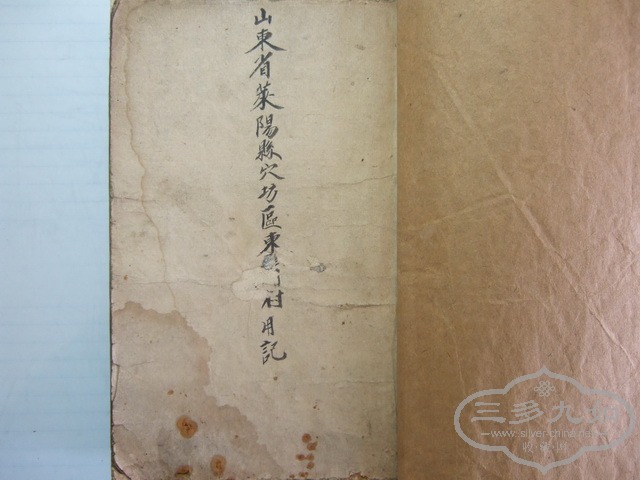 山東省萊陽縣穴坊區東 村用記
三多九如
www.silver-china.net
收·藏·网